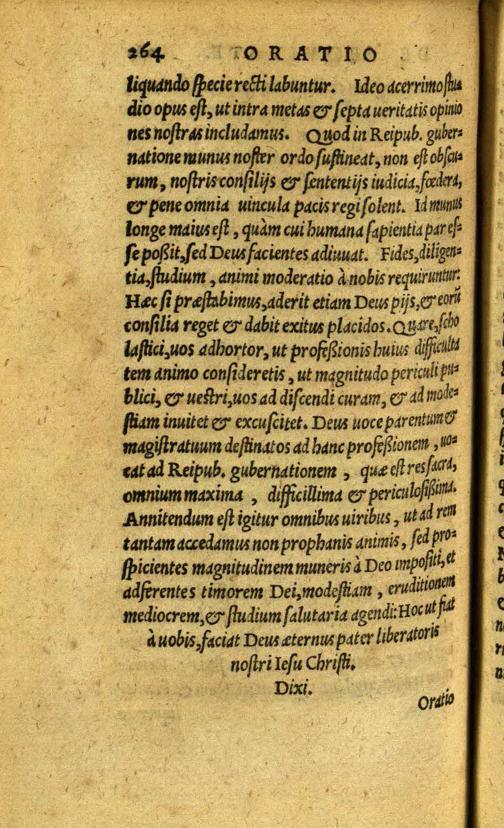 264 ORATIO
liquando specie recti labuntur. Ideo acerrimo stu
dio opus est, ut intra metas & septa ueritatis opinio
nes nostras includamus. Quod in Reipub. guber=
natione munus noster ordo sustineat, non est obscu=
rum, nostris consilijs & sententijs iudicia, fœdera,
& pene omnia uincula pacis regi solent. Id munus
longe maius est, quàm cui humana sapientia par es=
se poßit, sed Deus facientes adiuuat. Fides, diligen=
tia, studium, animi moderatio à nobis requiruntur.
Hæc si præstabimus, aderit etiam Deus pijs, & eorũ
consilia reget & dabit exitus placidos. Quare, scho
lastici, uos adhortor, ut profeßionis huius difficulta
tem animo consideretis, ut magnitudo periculi pu=
blici, & uestri, uos ad discendi curam, & ad mode=
stiam inuitet & excuscitet. Deus uoce parentum &
magistratuum destinatos ad hanc profeßionem, uo=
cat ad Reipub. gubernationem, quæ est res sacra,
omnium maxima, difficillima & periculosißima.
Annitendum est igitur omnibus uiribus, ut ad rem
tantam accedamus non prophanis animis, sed pro=
spicientes magnitudinem muneris à Deo impositi, et
adferentes timorem Dei, modestiam, eruditionem
mediocrem, & studium salutaria agendi: Hoc ut fiat
à uobis, faciat Deus æternus pater liberatoris
nostri Iesu Christi.
Dixi.
Oratio